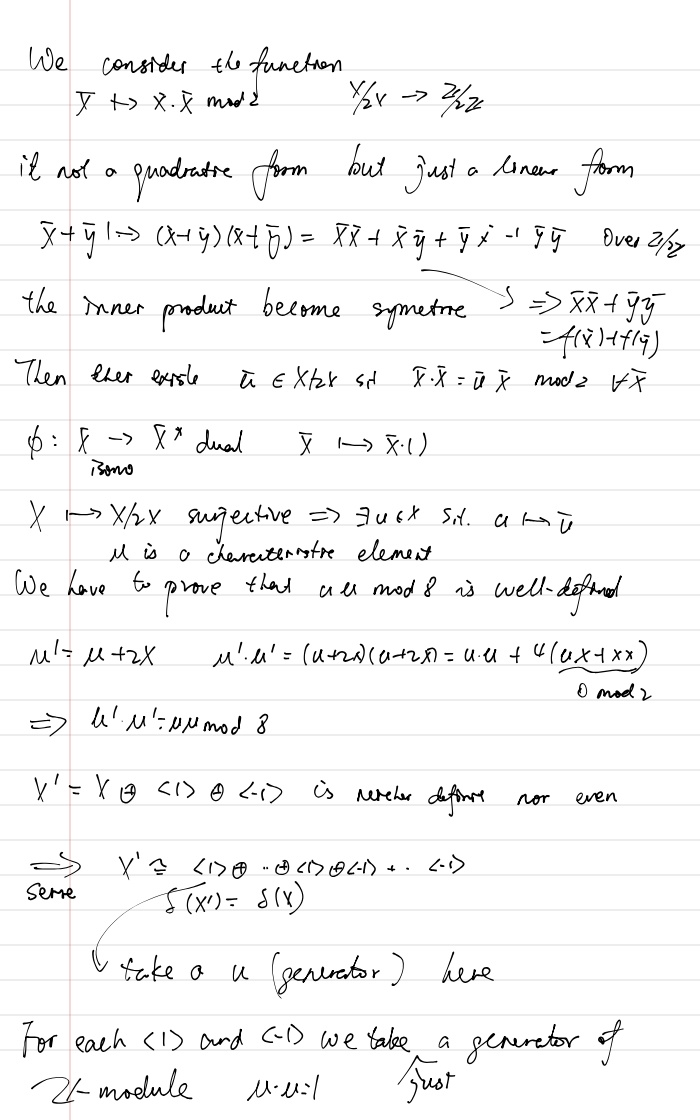 We consider the function
x̄ ↦ x̄·x̄ mod 2 X/2X → Z/2Z
it not a quadratic form but just a linear form
x̄+ȳ ↦ (x̄+ȳ)(x̄+ȳ) = x̄x̄ + x̄ȳ + ȳx̄ + ȳȳ over Z/2Z
the inner product become symetric ⟹ x̄x̄ + ȳȳ
= f(x̄)+f(ȳ)
Then ther exists ū ∈ X/2X s.t x̄·x̄ = ū x̄ mod 2 ∀x̄
ϕ: X̄ → X̄* dual x̄ ↦ x̄·( )
isomo
X ↦ X/2X surjective ⟹ ∃u∈X s.t. u ↦ ū
u is a characteristic element
We have to prove that uu mod 8 is well-defined
u' = u + 2x u'·u' = (u+2x)(u+2x) = u·u + 4(ux+xx)
0 mod 2
⟹ u'·u' = uu mod 8
X' = X ⊕ <1> ⊕ <-1> is neither definite nor even
⟹ X' ≅ <1>⊕ ·· ⊕<1>⊕<-1> + ·· <-1>
Serre δ(X') = δ(X)
take a u (generator) here
For each <1> and <-1> we take a generator of
just
Z-module u·u=1